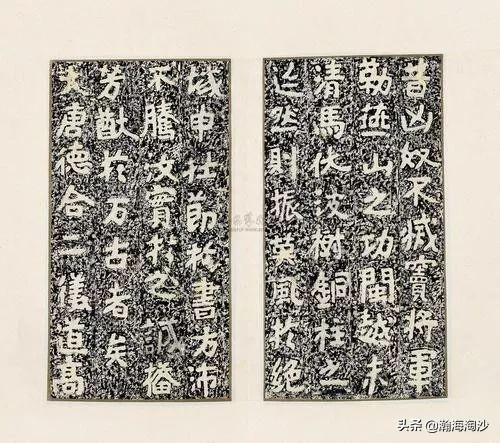 昔凶奴不滅竇將軍
勒燕山之功閩越未
清馬伏波樹銅柱之
迹然則振英風於絕
域申壯節於方
不騰茂實於之播
芳猷於万古者矣
大唐德合二儀道高
头条 @瀚海淘沙